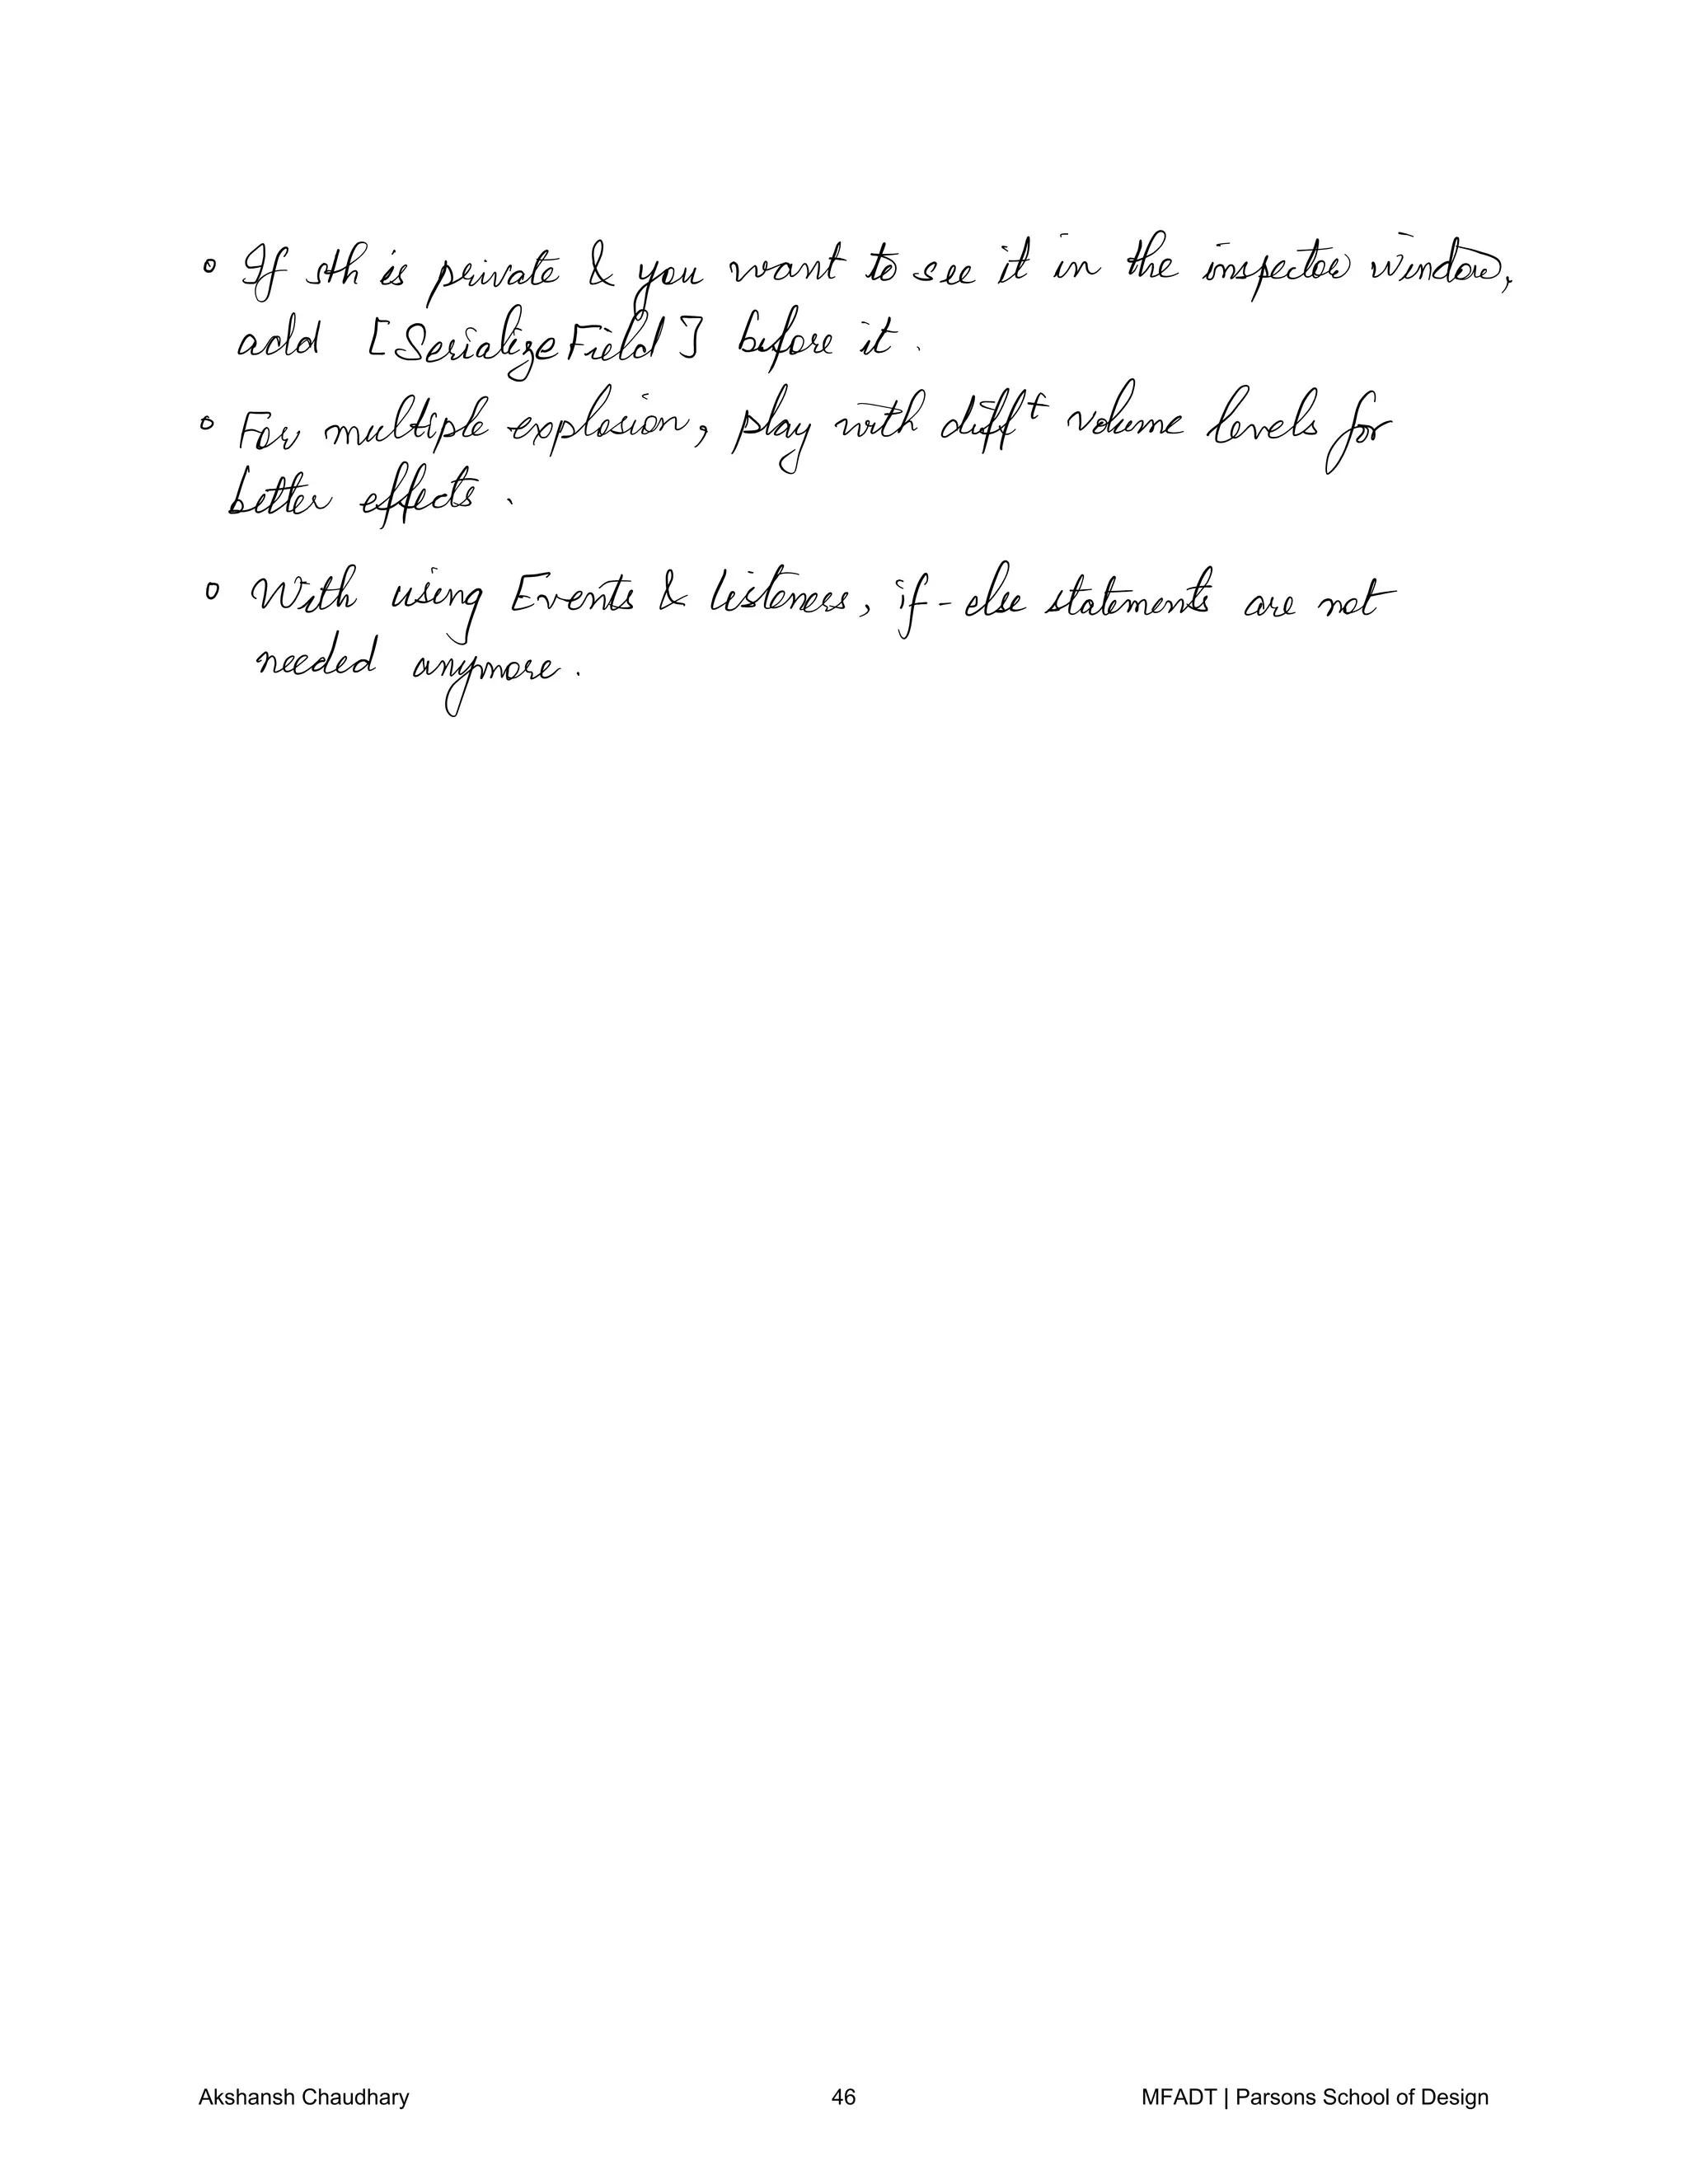 ∘ If sth is private & you want to see it in the inspector window,
add [SerializeField] before it.
∘ For multiple explosion, play with diffᵗ volume levels for
better effects.
∘ With using Events & listeners, if-else statements are not
needed anymore.
Akshansh Chaudhary 46 MFADT | Parsons School of Design